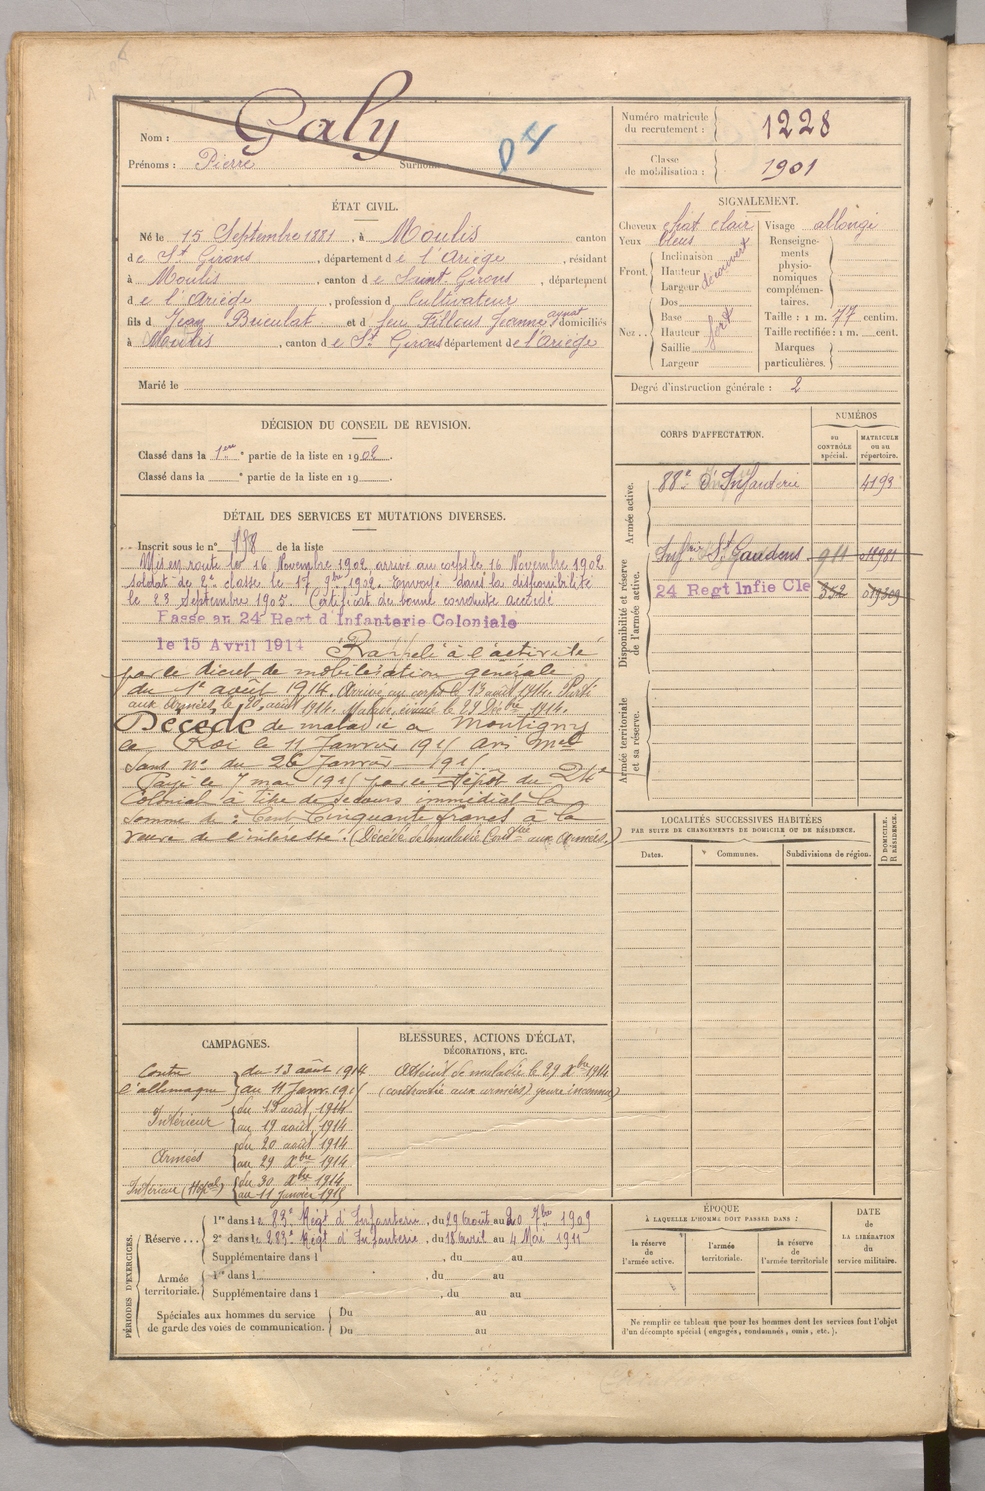 Nom : Galy
Prénoms : Pierre Surnom
D 4
Numéro matricule du recrutement : 1228
Classe de mobilisation : 1901
ÉTAT CIVIL.
Né le 15 Septembre 1881, à Moulis canton
de St Girons, département de l'Ariège, résidant
à Moulis, canton de Saint Girons, département
de l'Ariège, profession d Cultivateur
fils d Jean et d feu Fillous Jeanne domiciliés
à Moulis, canton de St Girons département de l'Ariège
Marié le
SIGNALEMENT.
Cheveux chat clair
Yeux bleus
Front. Inclinaison Hauteur Largeur découvert
Nez.. Dos Base Hauteur Saillie Largeur fort
Visage allongé
Renseignements physionomiques complémentaires.
Taille : 1 m. 77 centim.
Taille rectifiée : 1 m. cent.
Marques particulières.
Degré d'instruction générale : 2
DÉCISION DU CONSEIL DE REVISION.
Classé dans la 1ere partie de la liste en 1902.
Classé dans la e partie de la liste en 19
CORPS D'AFFECTATION.
NUMÉROS
au CONTRÔLE spécial.
MATRICULE ou au répertoire.
Armée active.
88e d'Infanterie 4193
Disponibilité et réserve de l'armée active.
Infrie St Gaudens 911 011981
24 Regt Infie Cle 352 019309
Armée territoriale et sa réserve.
DÉTAIL DES SERVICES ET MUTATIONS DIVERSES.
Inscrit sous le n° 178 de la liste
Mis en route le 16 Novembre 1902, arrivé au corps le 16 Novembre 1902
soldat de 2e classe le 17 9bre 1902. Envoyé dans la disponibilité
le 23 Septembre 1905. Certificat de bonne conduite accordé
Passe au 24 Regt d'Infanterie Coloniale
le 15 Avril 1914 Rappelé à l'activité
par le décret de mobilisation générale
du 1er août 1914. Arrivé au corps le 13 août 1914. Parti
aux Armées, le 20 août 1914. Malade, évacué le 29 Xbre 1914.
Décédé de maladie à Montigny
le Roi le 11 Janvier 1915 Avis Mel
sans n° du 26 Janvier 1915.
Payé le 7 mai 1915 par le Dépôt du 24e
Colonial à titre de secours immédiat la
somme de : Cent Cinquante francs à la
veuve de l'intéressé. (Décédé de maladie Contctée aux Armées.)
LOCALITÉS SUCCESSIVES HABITÉES
PAR SUITE DE CHANGEMENTS DE DOMICILE OU DE RÉSIDENCE.
Dates. Communes. Subdivisions de région. D DOMICILE. R RÉSIDENCE.
CAMPAGNES.
Contre l'allemagne du 13 août 1914
au 11 Janv. 1915
Intérieur du 13 août 1914
au 19 août 1914
Armées du 20 août 1914
au 29 Xbre 1914
Intérieur (Hopal) du 30 Xbre 1914
au 11 janvier 1915
BLESSURES, ACTIONS D'ÉCLAT,
DÉCORATIONS, ETC.
Atteint de maladie le 29 Xbre 1914
(contractée aux armées) genre inconnu)
PÉRIODES D'EXERCICES.
Réserve... 1re dans le 283e Régt d'Infanterie, du 29 Août au 20 7bre 1909
2e dans le 283e Régt d'Infanterie, du 18 Avril au 4 Mai 1911
Supplémentaire dans l , du au
Armée territoriale. 1re dans l , du au
Supplémentaire dans l , du au
Spéciales aux hommes du service de garde des voies de communication. Du au
Du au
ÉPOQUE
À LAQUELLE L'HOMME DOIT PASSER DANS :
la réserve de l'armée active.
l'armée territoriale.
la réserve de l'armée territoriale
DATE de LA LIBÉRATION du service militaire.
Ne remplir ce tableau que pour les hommes dont les services font l'objet
d'un décompte spécial (engagés, condamnés, omis, etc.).